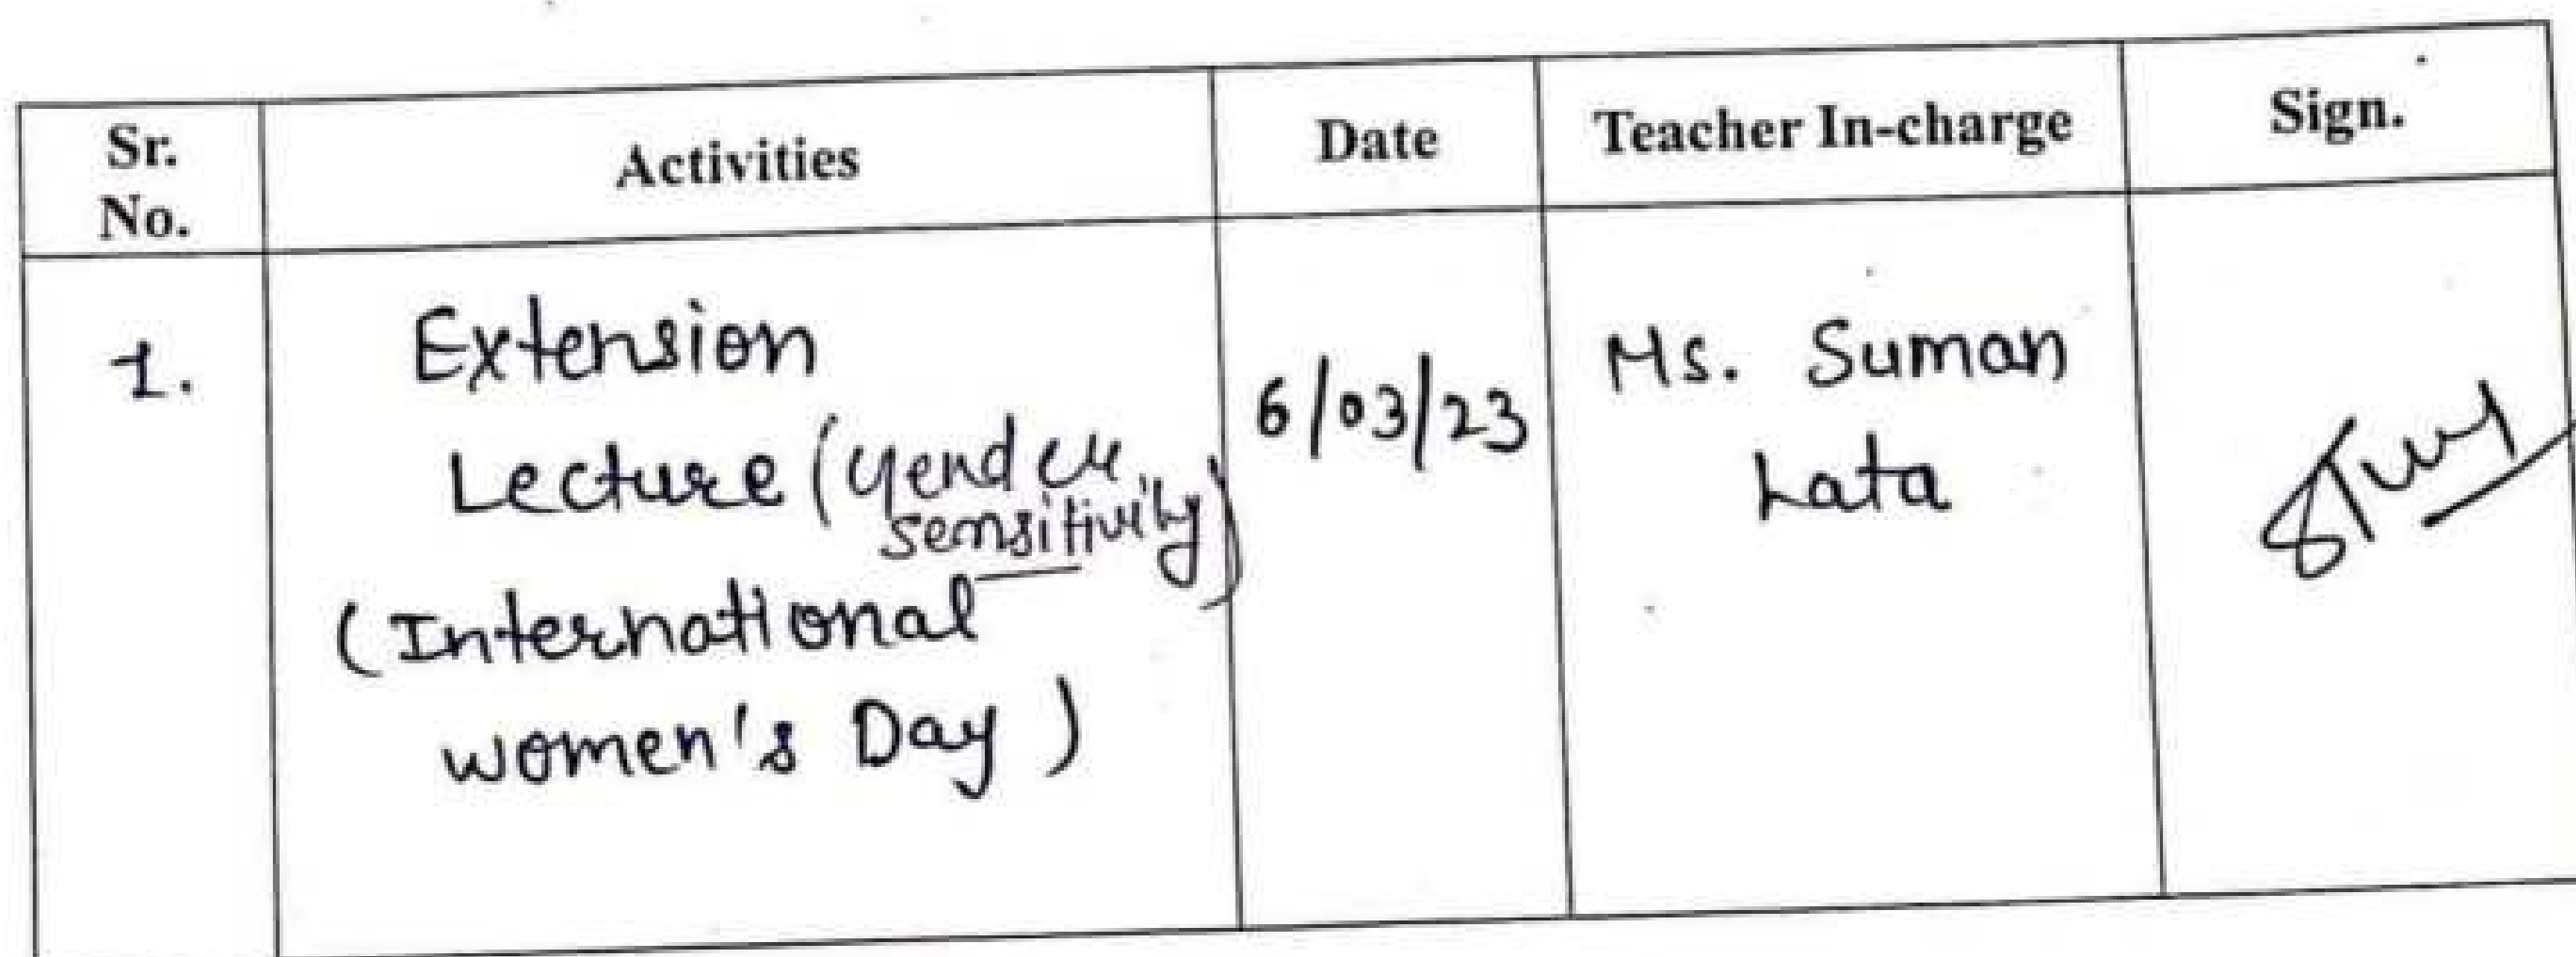 Sr. No.
Activities
Date
Teacher In-charge
Sign.
1.
Extension
Lecture (Gender
sensitivity)
(International
women's Day)
6/03/23
Ms. Suman
Lata